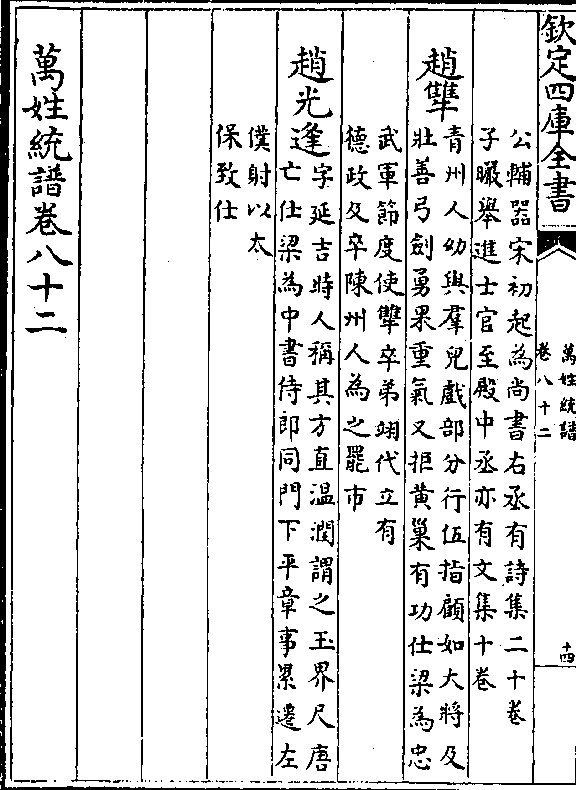 欽定四庫全書
萬姓統譜
卷八十二
十四
公輔器宋初起為尚書右丞有詩集二十卷
子曮舉進士官至殿中丞亦有文集十卷
趙犨
青州人幼與羣兒戲部分行伍指顧如大將及
壯善弓劍勇果重氣又拒黃巢有功仕梁為忠
武軍節度使犨卒弟翊代立有
德政及卒陳州人為之罷市
趙光逢
字延吉時人稱其方直溫潤謂之玉界尺唐
亡仕梁為中書侍郎同門下平章事累遷左
僕射以太
保致仕
萬姓統譜卷八十二